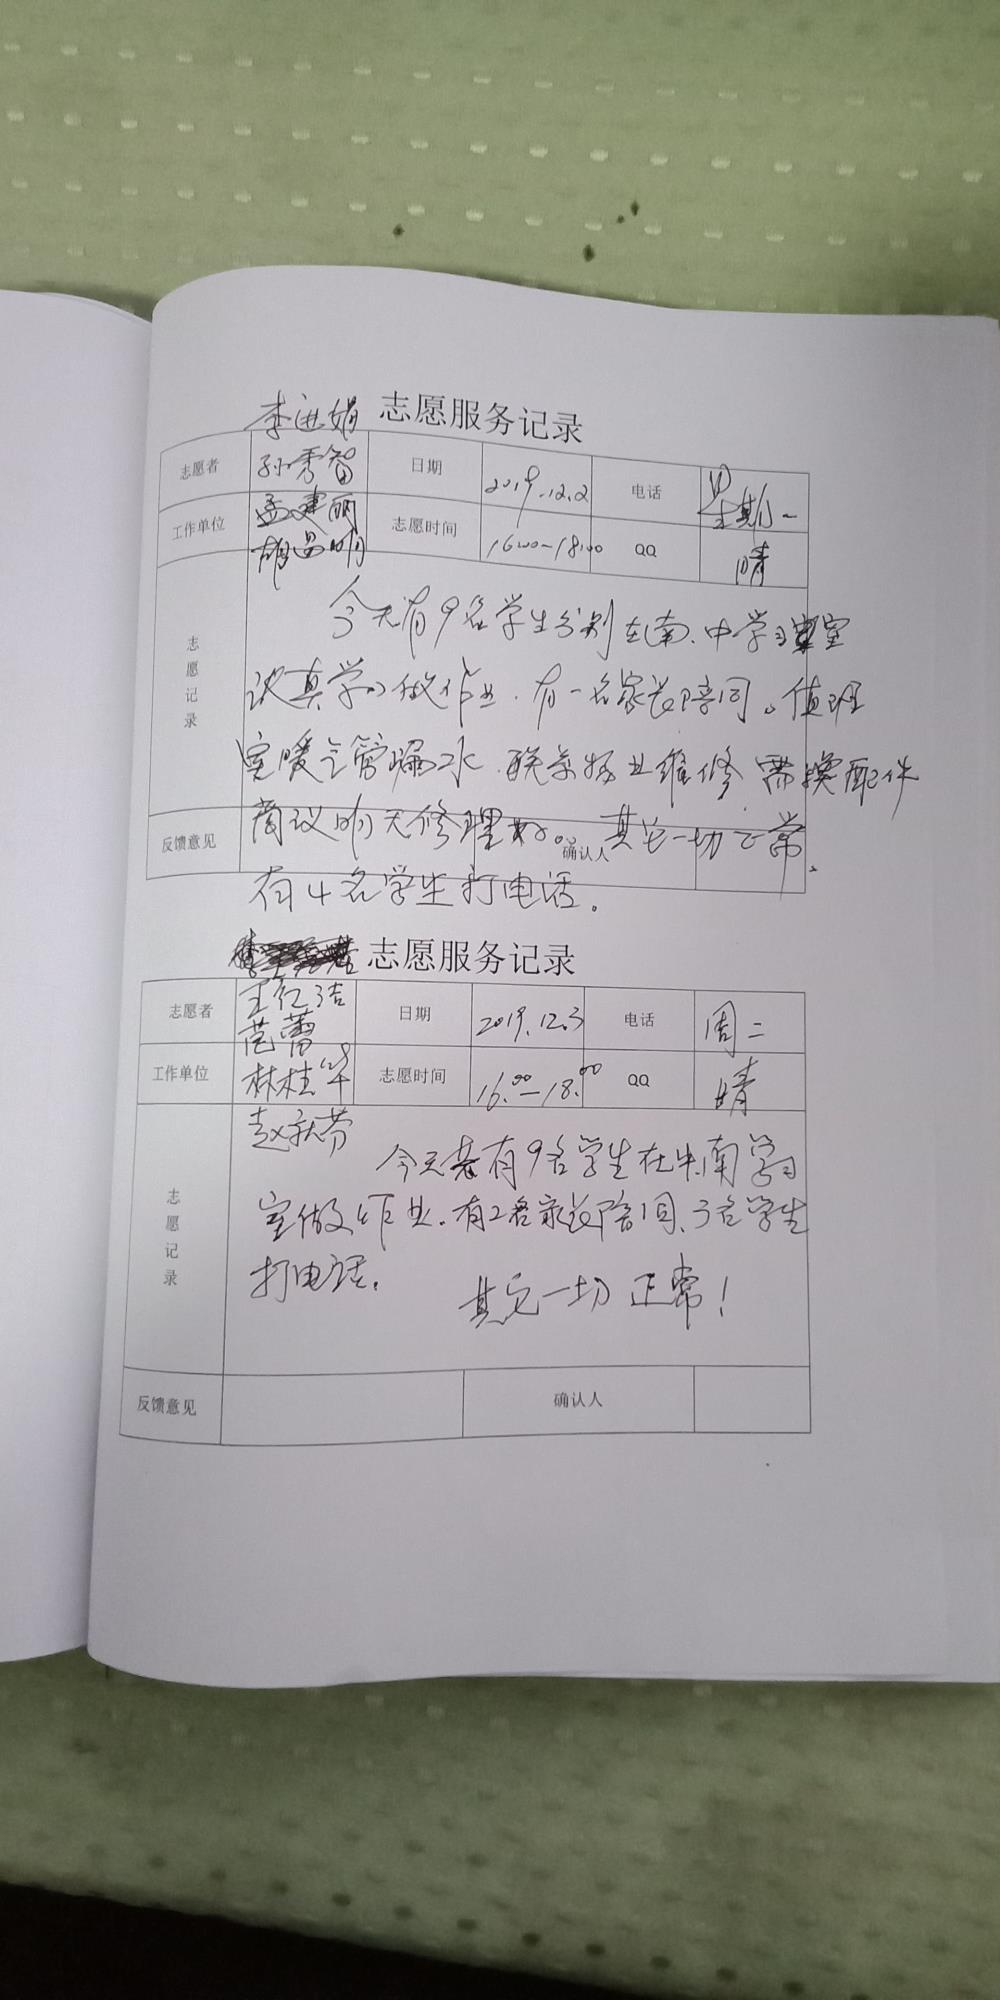 李进娟 志愿服务记录
志愿者 孙秀智 日期 2019.12.2 电话 星期一
工作单位 孟建丽 志愿时间 16:00-18:00 QQ 晴
胡昌明
志愿记录
今天有9名学生分别在南、中学习室
认真学习做作业,有一名家长陪同。值班
室暖气管漏水,联系物业维修需换配件
商议明天修理好。其它一切正常。
反馈意见 确认人
有4名学生打电话。
志愿服务记录
志愿者 王红洁 日期 2019.12.3 电话 周二
范蕾
工作单位 林桂华 志愿时间 16:00-18:00 QQ 晴
赵秋芬
志愿记录
今天共有9名学生在中、南学习
室做作业。有2名家长陪同、3名学生
打电话。
其它一切正常!
反馈意见 确认人